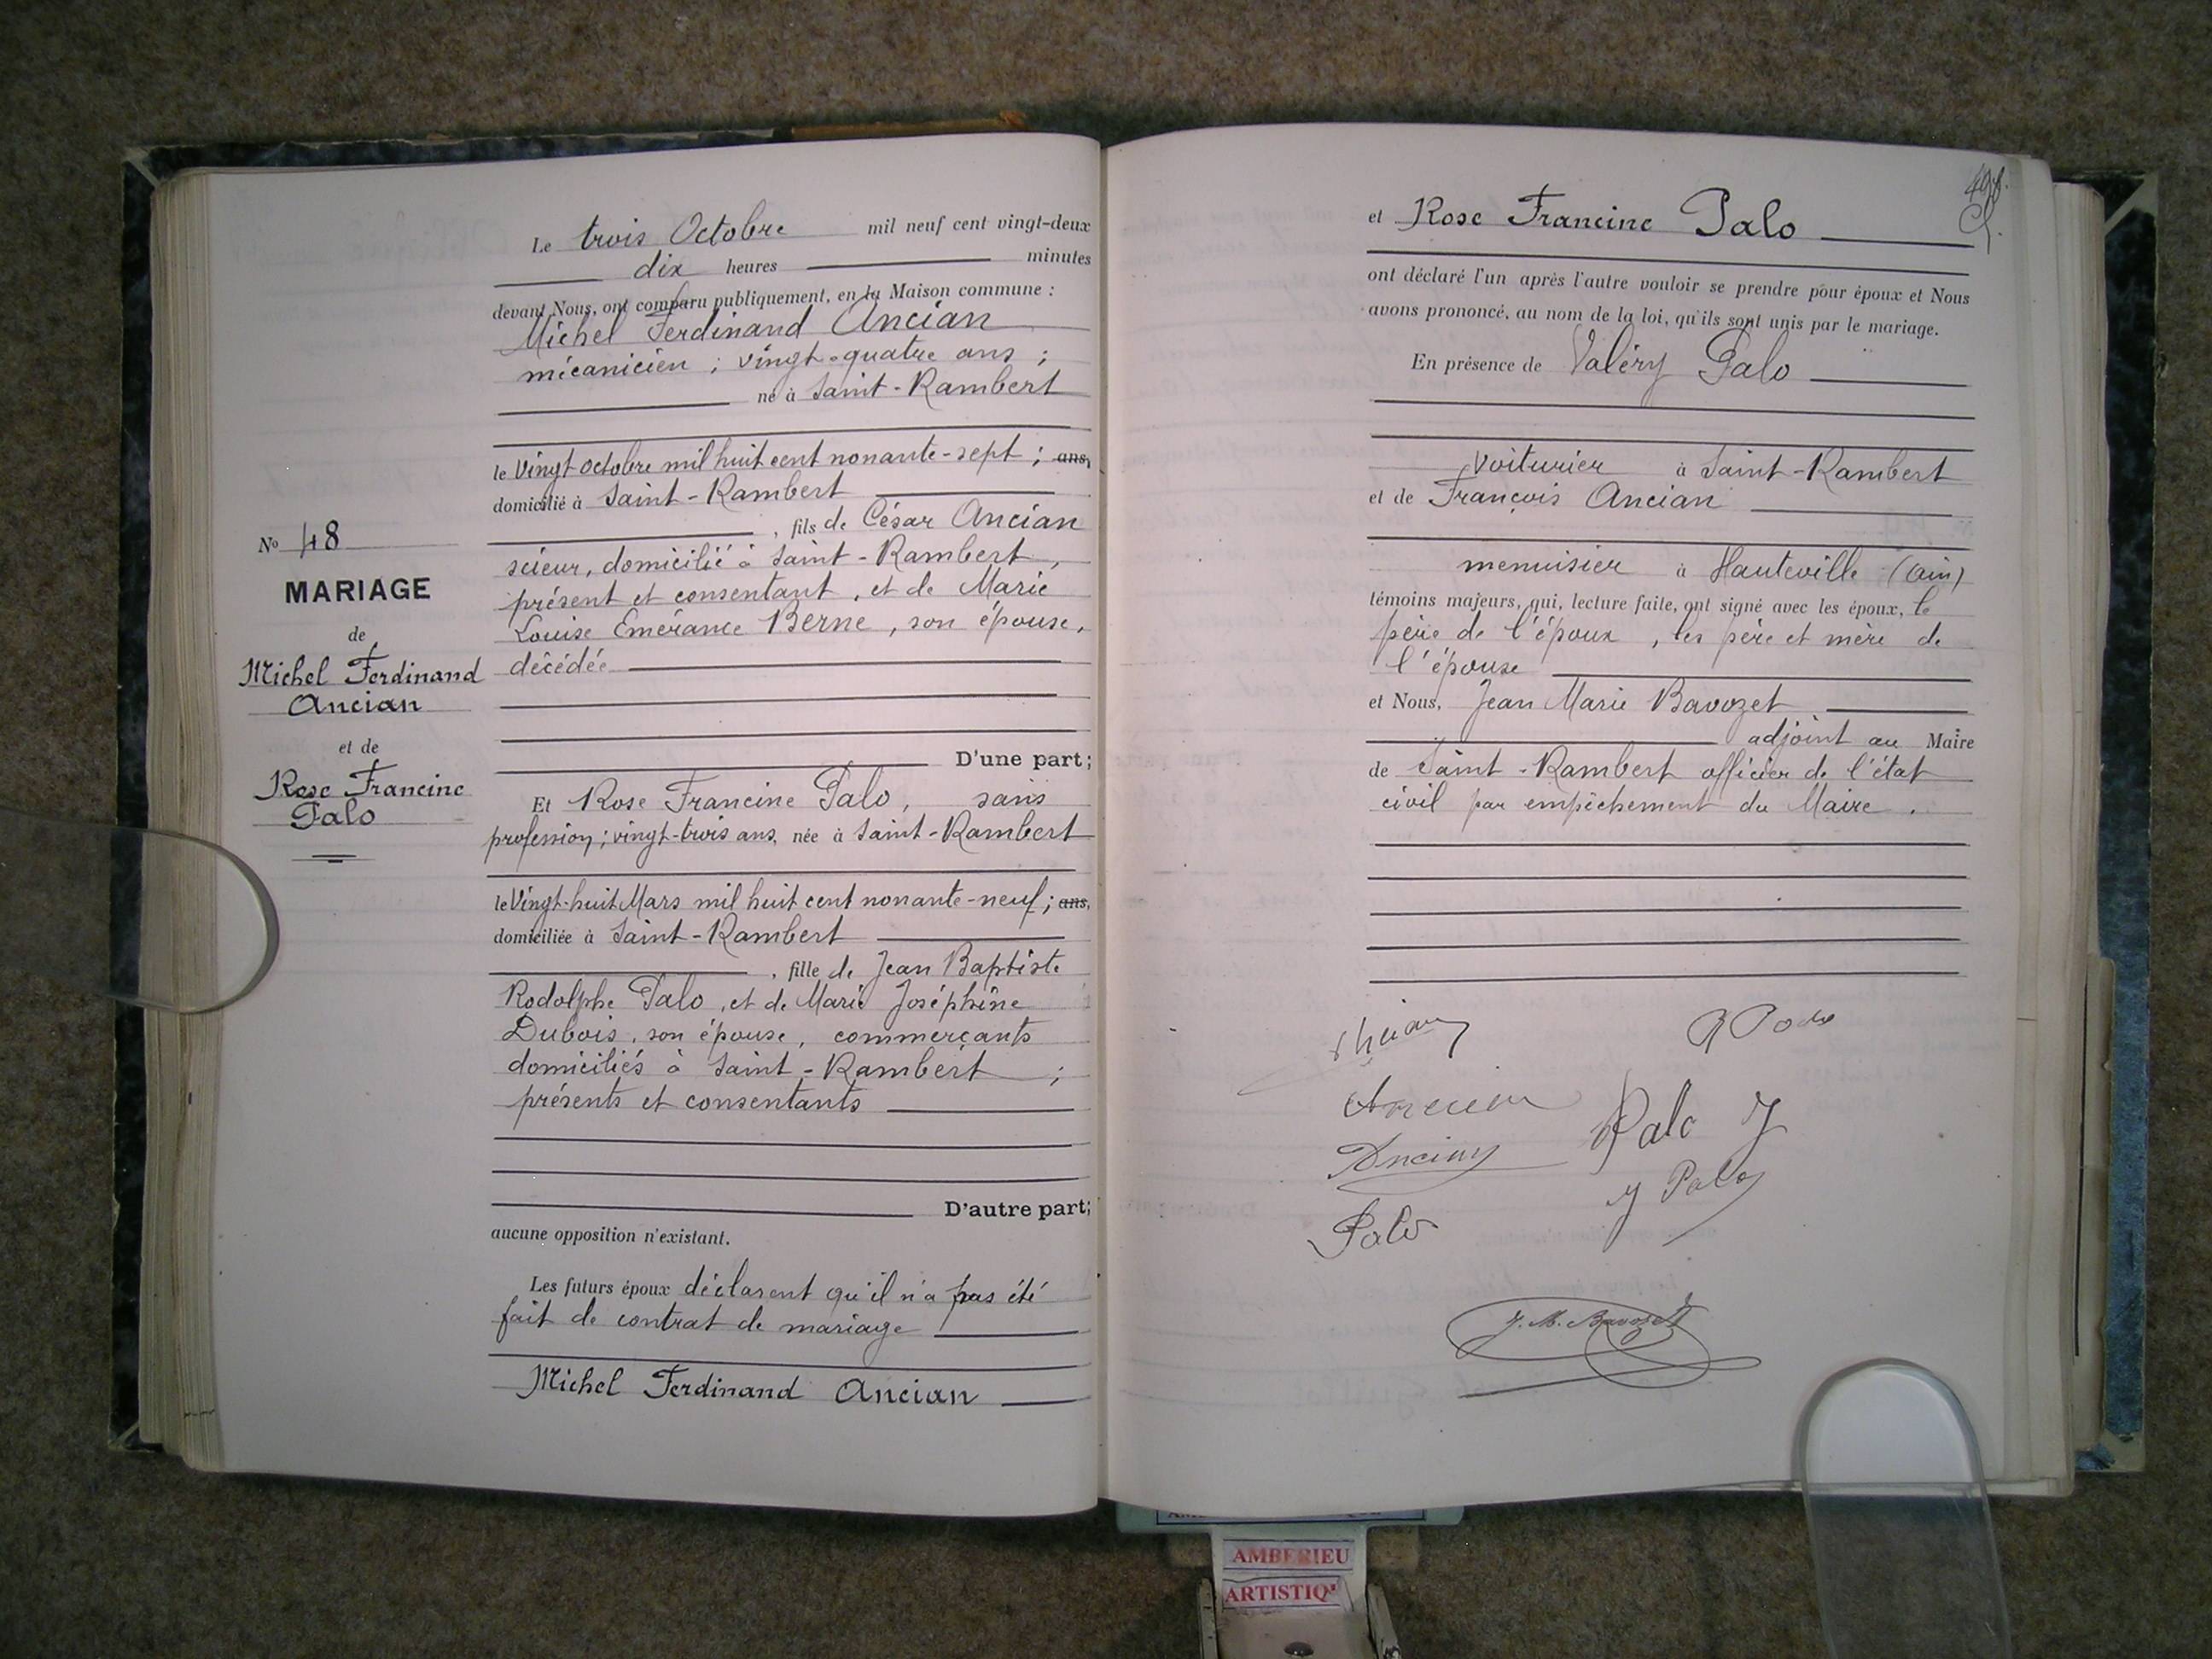 Le trois Octobre mil neuf cent vingt-deux
dix heures minutes
devant Nous, ont comparu publiquement, en la Maison commune :
Michel Ferdinand Ancian
mécanicien ; vingt-quatre ans ;
né à Saint-Rambert
le Vingt octobre mil huit cent nonante-sept ; ans,
domicilié à Saint-Rambert
, fils de César Ancian
scieur, domicilié à Saint-Rambert,
présent et consentant, et de Marie
Louise Emérance Berne, son épouse,
décédée
D'une part;
Et Rose Francine Palo, sans
profession ; vingt-trois ans, née à Saint-Rambert
le Vingt-huit Mars mil huit cent nonante-neuf ; ans,
domiciliée à Saint-Rambert
, fille de Jean Baptiste
Rodolphe Palo, et de Marie Joséphine
Dubois, son épouse, commerçants
domiciliés à Saint-Rambert ;
présents et consentants
D'autre part;
aucune opposition n'existant.
Les futurs époux déclarent qu'il n'a pas été
fait de contrat de mariage
Michel Ferdinand Ancian
No 48
MARIAGE
de
Michel Ferdinand
Ancian
et de
Rose Francine
Palo
et Rose Francine Palo
ont déclaré l'un après l'autre vouloir se prendre pour époux et Nous
avons prononcé, au nom de la loi, qu'ils sont unis par le mariage.
En présence de Valéry Palo
voiturier à Saint-Rambert
et de François Ancian
menuisier à Hauteville (Ain)
témoins majeurs, qui, lecture faite, ont signé avec les époux, le
père de l'époux, les père et mère de
l'épouse
et Nous, Jean Marie Bavozet
adjoint au Maire
de Saint-Rambert officier de l'état
civil par empêchement du Maire.
Palo J
J Palo
Palo
J. M. Bavozet
AMBERIEU
ARTISTIQ